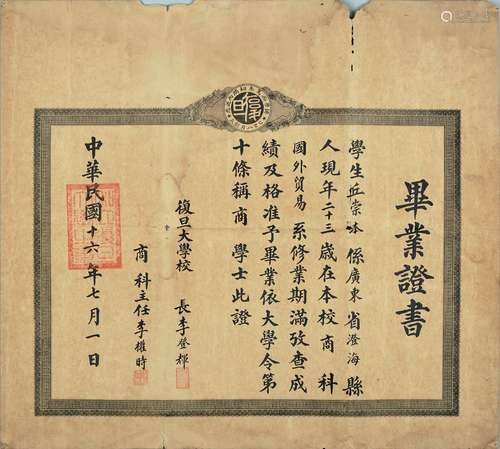 畢業證書
學生丘崇 係廣東省澄海縣
人現年二十三歲在本校商科
國外貿易系修業期滿攷查成
績及格准予畢業依大學令第
十條稱商學士此證
復旦大學校長李登輝
商科主任李權時
中華民國十六年七月一日
復旦